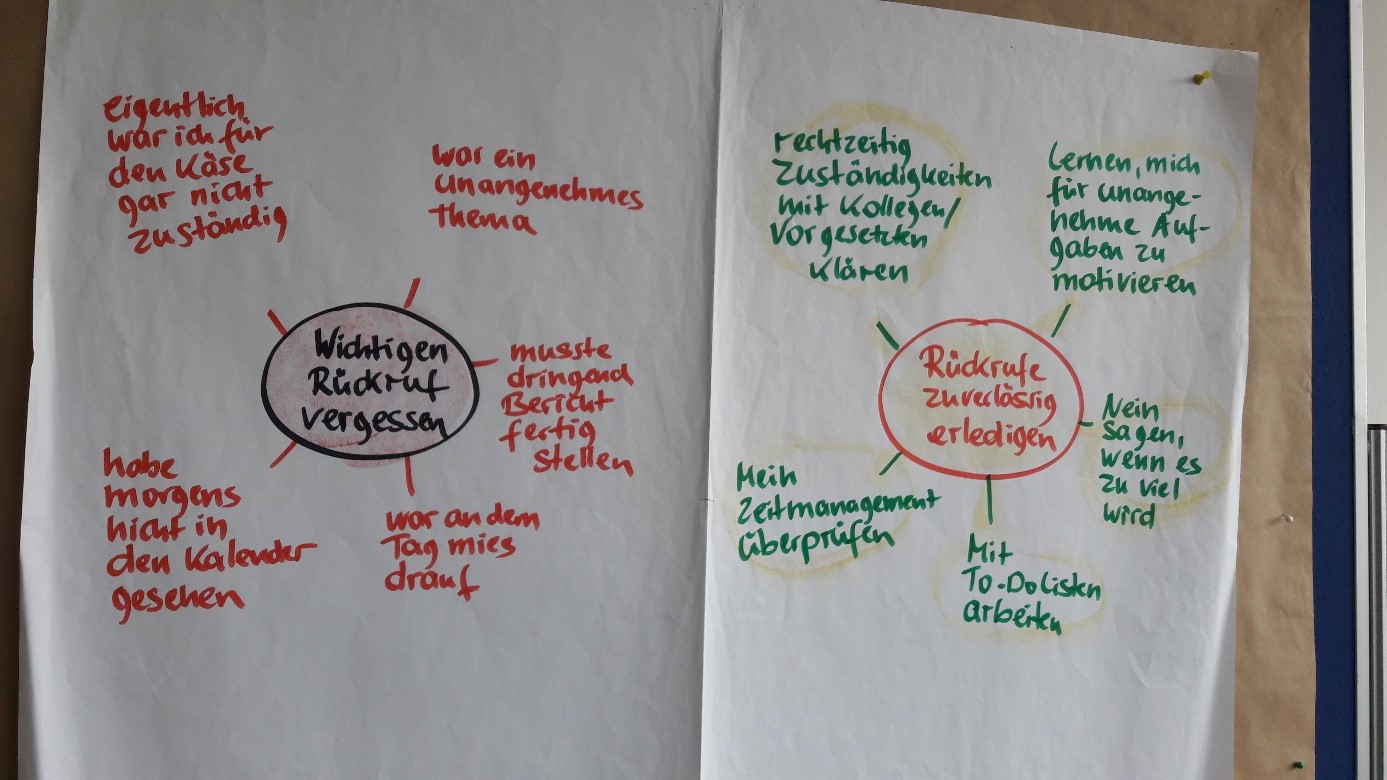 eigentlich
war ich für
den Käse
gar nicht
zuständig
war ein
unangenehmes
thema
Wichtigen
Rückruf
vergessen
musste
dringend
Bericht
fertig
stellen
habe
morgens
nicht in
den Kalender
gesehen
war an dem
Tag mies
drauf
rechtzeitig
Zuständigkeiten
mit Kollegen/
Vorgesetzten
klären
Lernen, mich
für unange-
nehme Auf-
gaben zu
motivieren
Rückrufe
zuverlässig
erledigen
Nein
sagen,
wenn es
zu viel
wird
Mein
Zeitmanagement
überprüfen
Mit
To-Do Listen
arbeiten